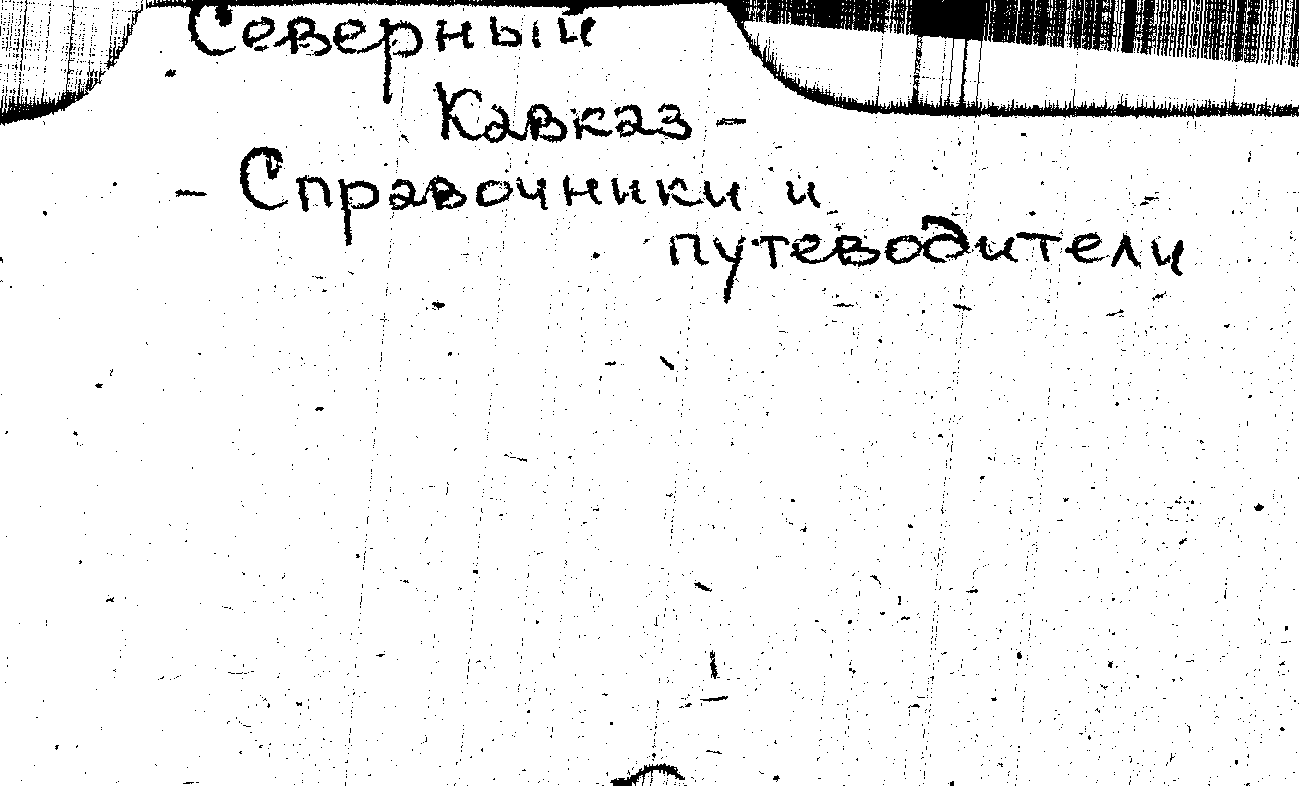 Северный
Кавказ -
- Справочники и
путеводители